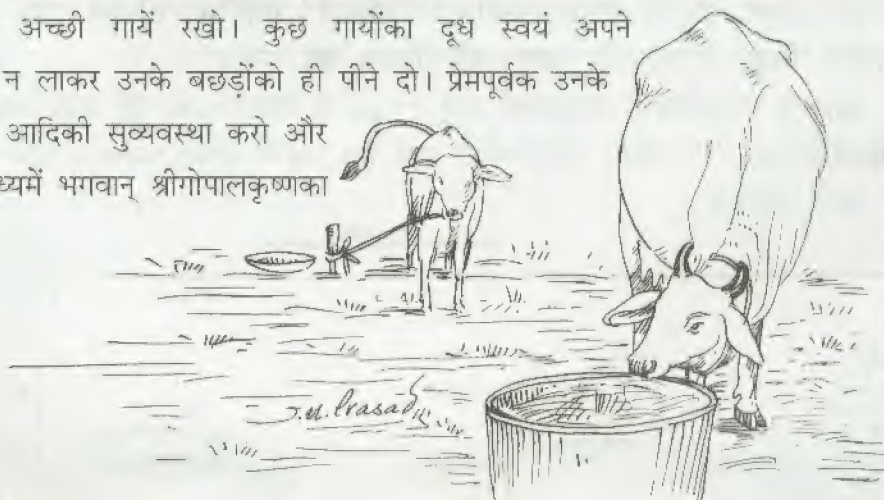 अच्छी गायें रखो। कुछ गायोंका दूध स्वयं अपने
न लाकर उनके बछड़ोंको ही पीने दो। प्रेमपूर्वक उनके
आदिकी सुव्यवस्था करो और
ध्यमें भगवान् श्रीगोपालकृष्णका
J.N. Prasad